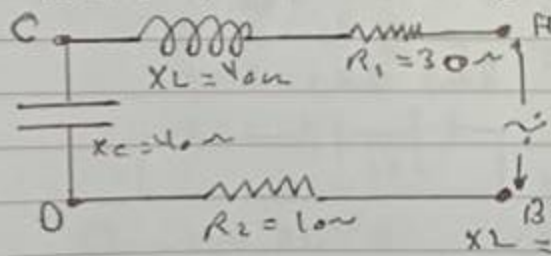 C A
XL = 70Ω R₁ = 30Ω
xc = 40Ω
D R₂ = 10Ω B
XL =